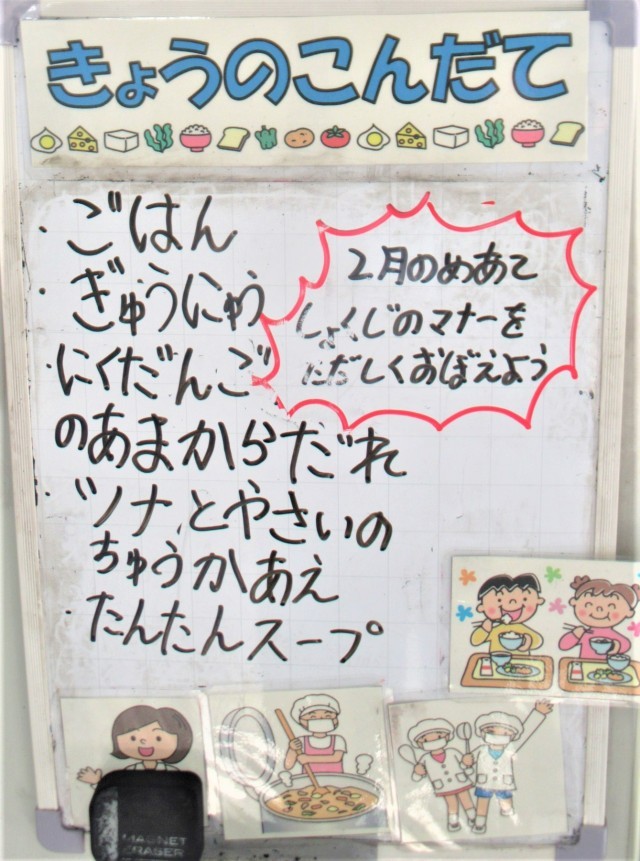 きょうのこんだて
・ごはん
・ぎゅうにゅう
・にくだんご
のあまからだれ
・ツナとやさいの
ちゅうかあえ
・たんたんスープ
2月のめあて
しょくじのマナーを
ただしくおぼえよう
MAGNET
ERASER